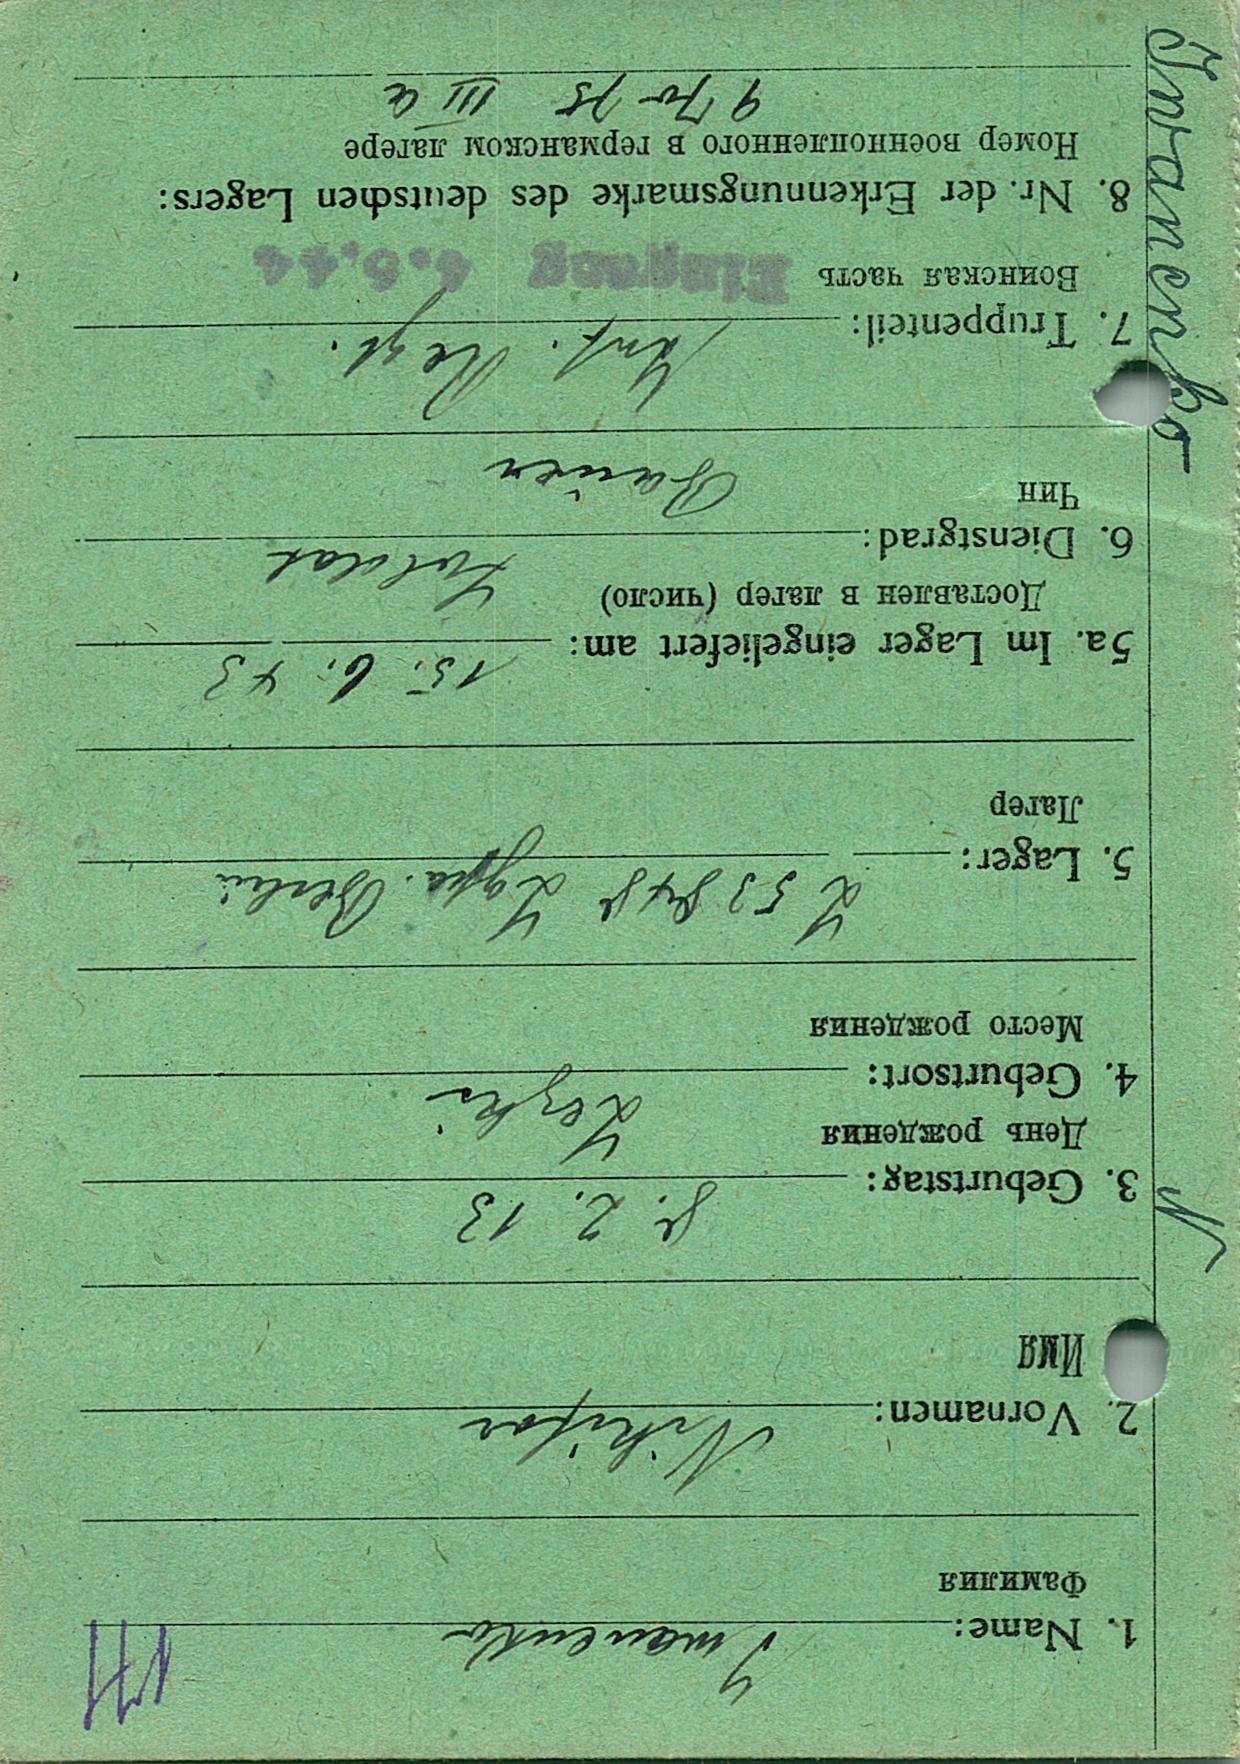 Iwanenko N
1. Name: Iwanenko
Фамилия
2. Vornamen: Nikifor
Имя
3. Geburtstag: 8. 2. 13
День рождения
4. Geburtsort:
Место рождения
5. Lager: Berlin
Лагер
5a. Im Lager eingeliefert am: 15. 6. 43
Доставлен в лагер (число)
6. Dienstgrad: Soldat
Чин
Bauer
7. Truppenteil: Inf. Regt.
Воинская часть Eingang
8. Nr. der Erkennungsmarke des deutschen Lagers:
Номер военнопленного в германском лагере
III a